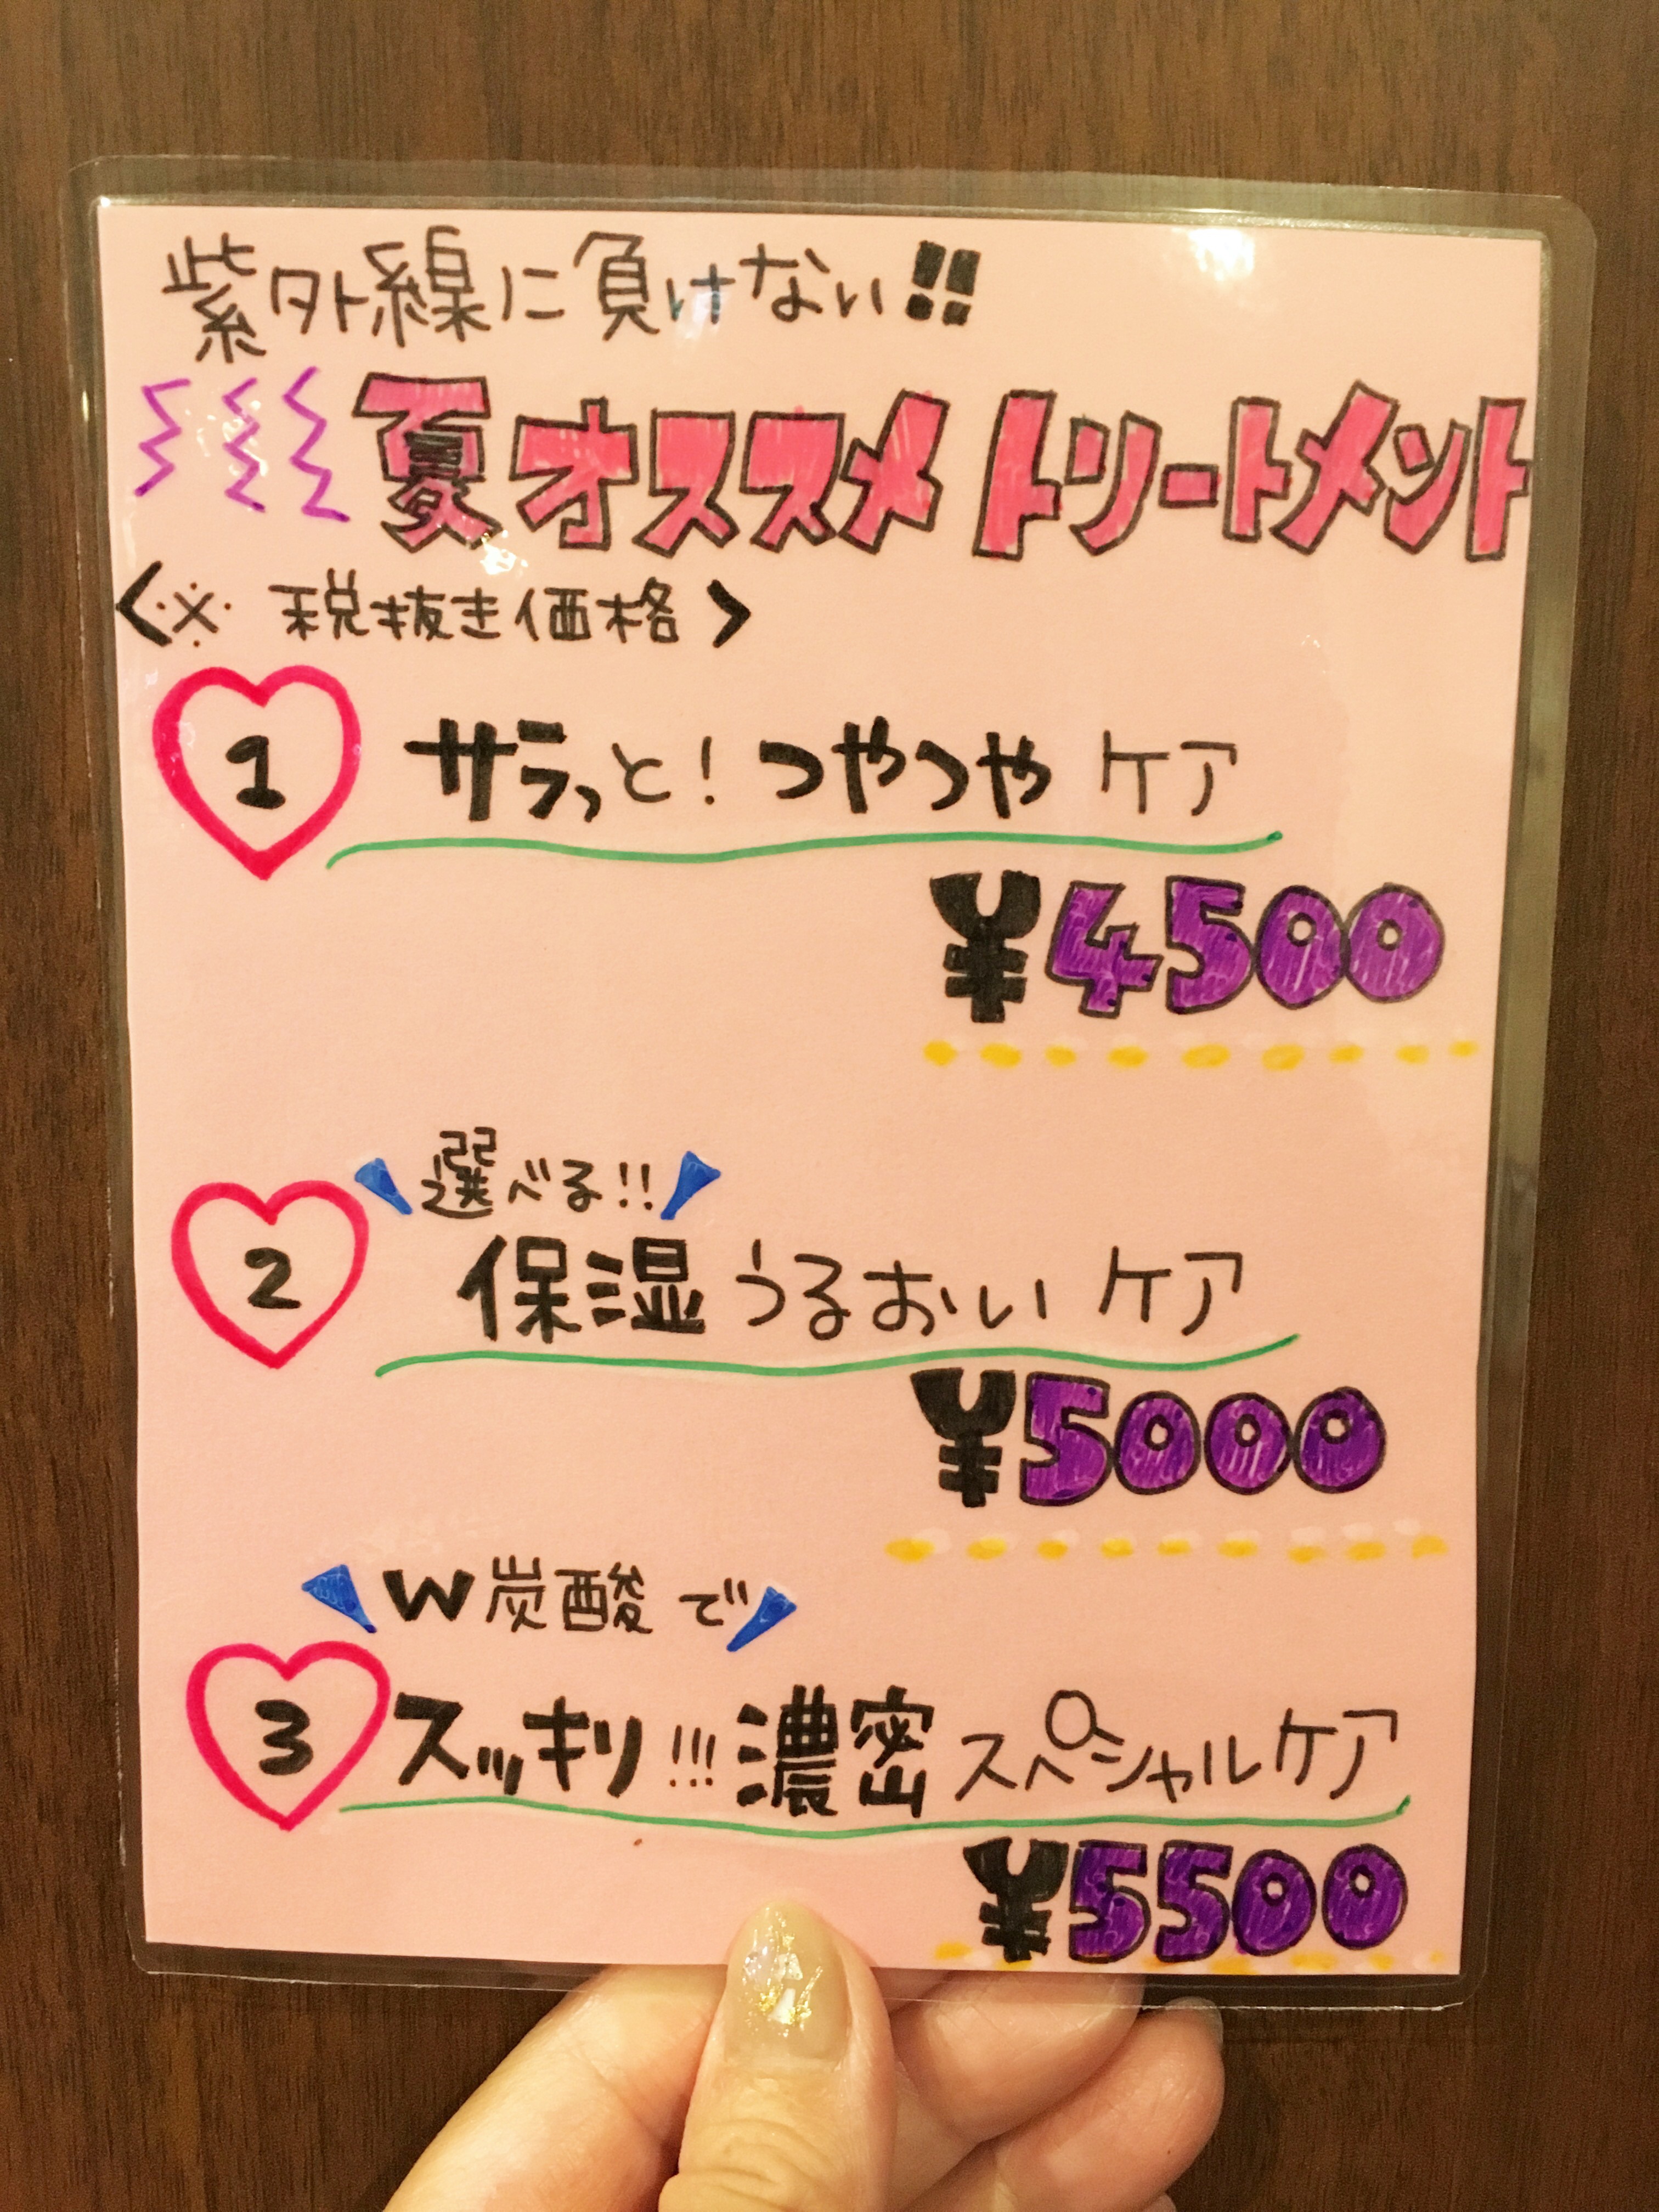 紫外線に負けない!!
夏オススメ トリートメント
<※ 税抜き価格>
1 サラっと！つやつや ケア
¥4500
選べる!!
2 保湿 うるおい ケア
¥5000
W炭酸で
3 スッキリ!!!濃密スペシャルケア
¥5500